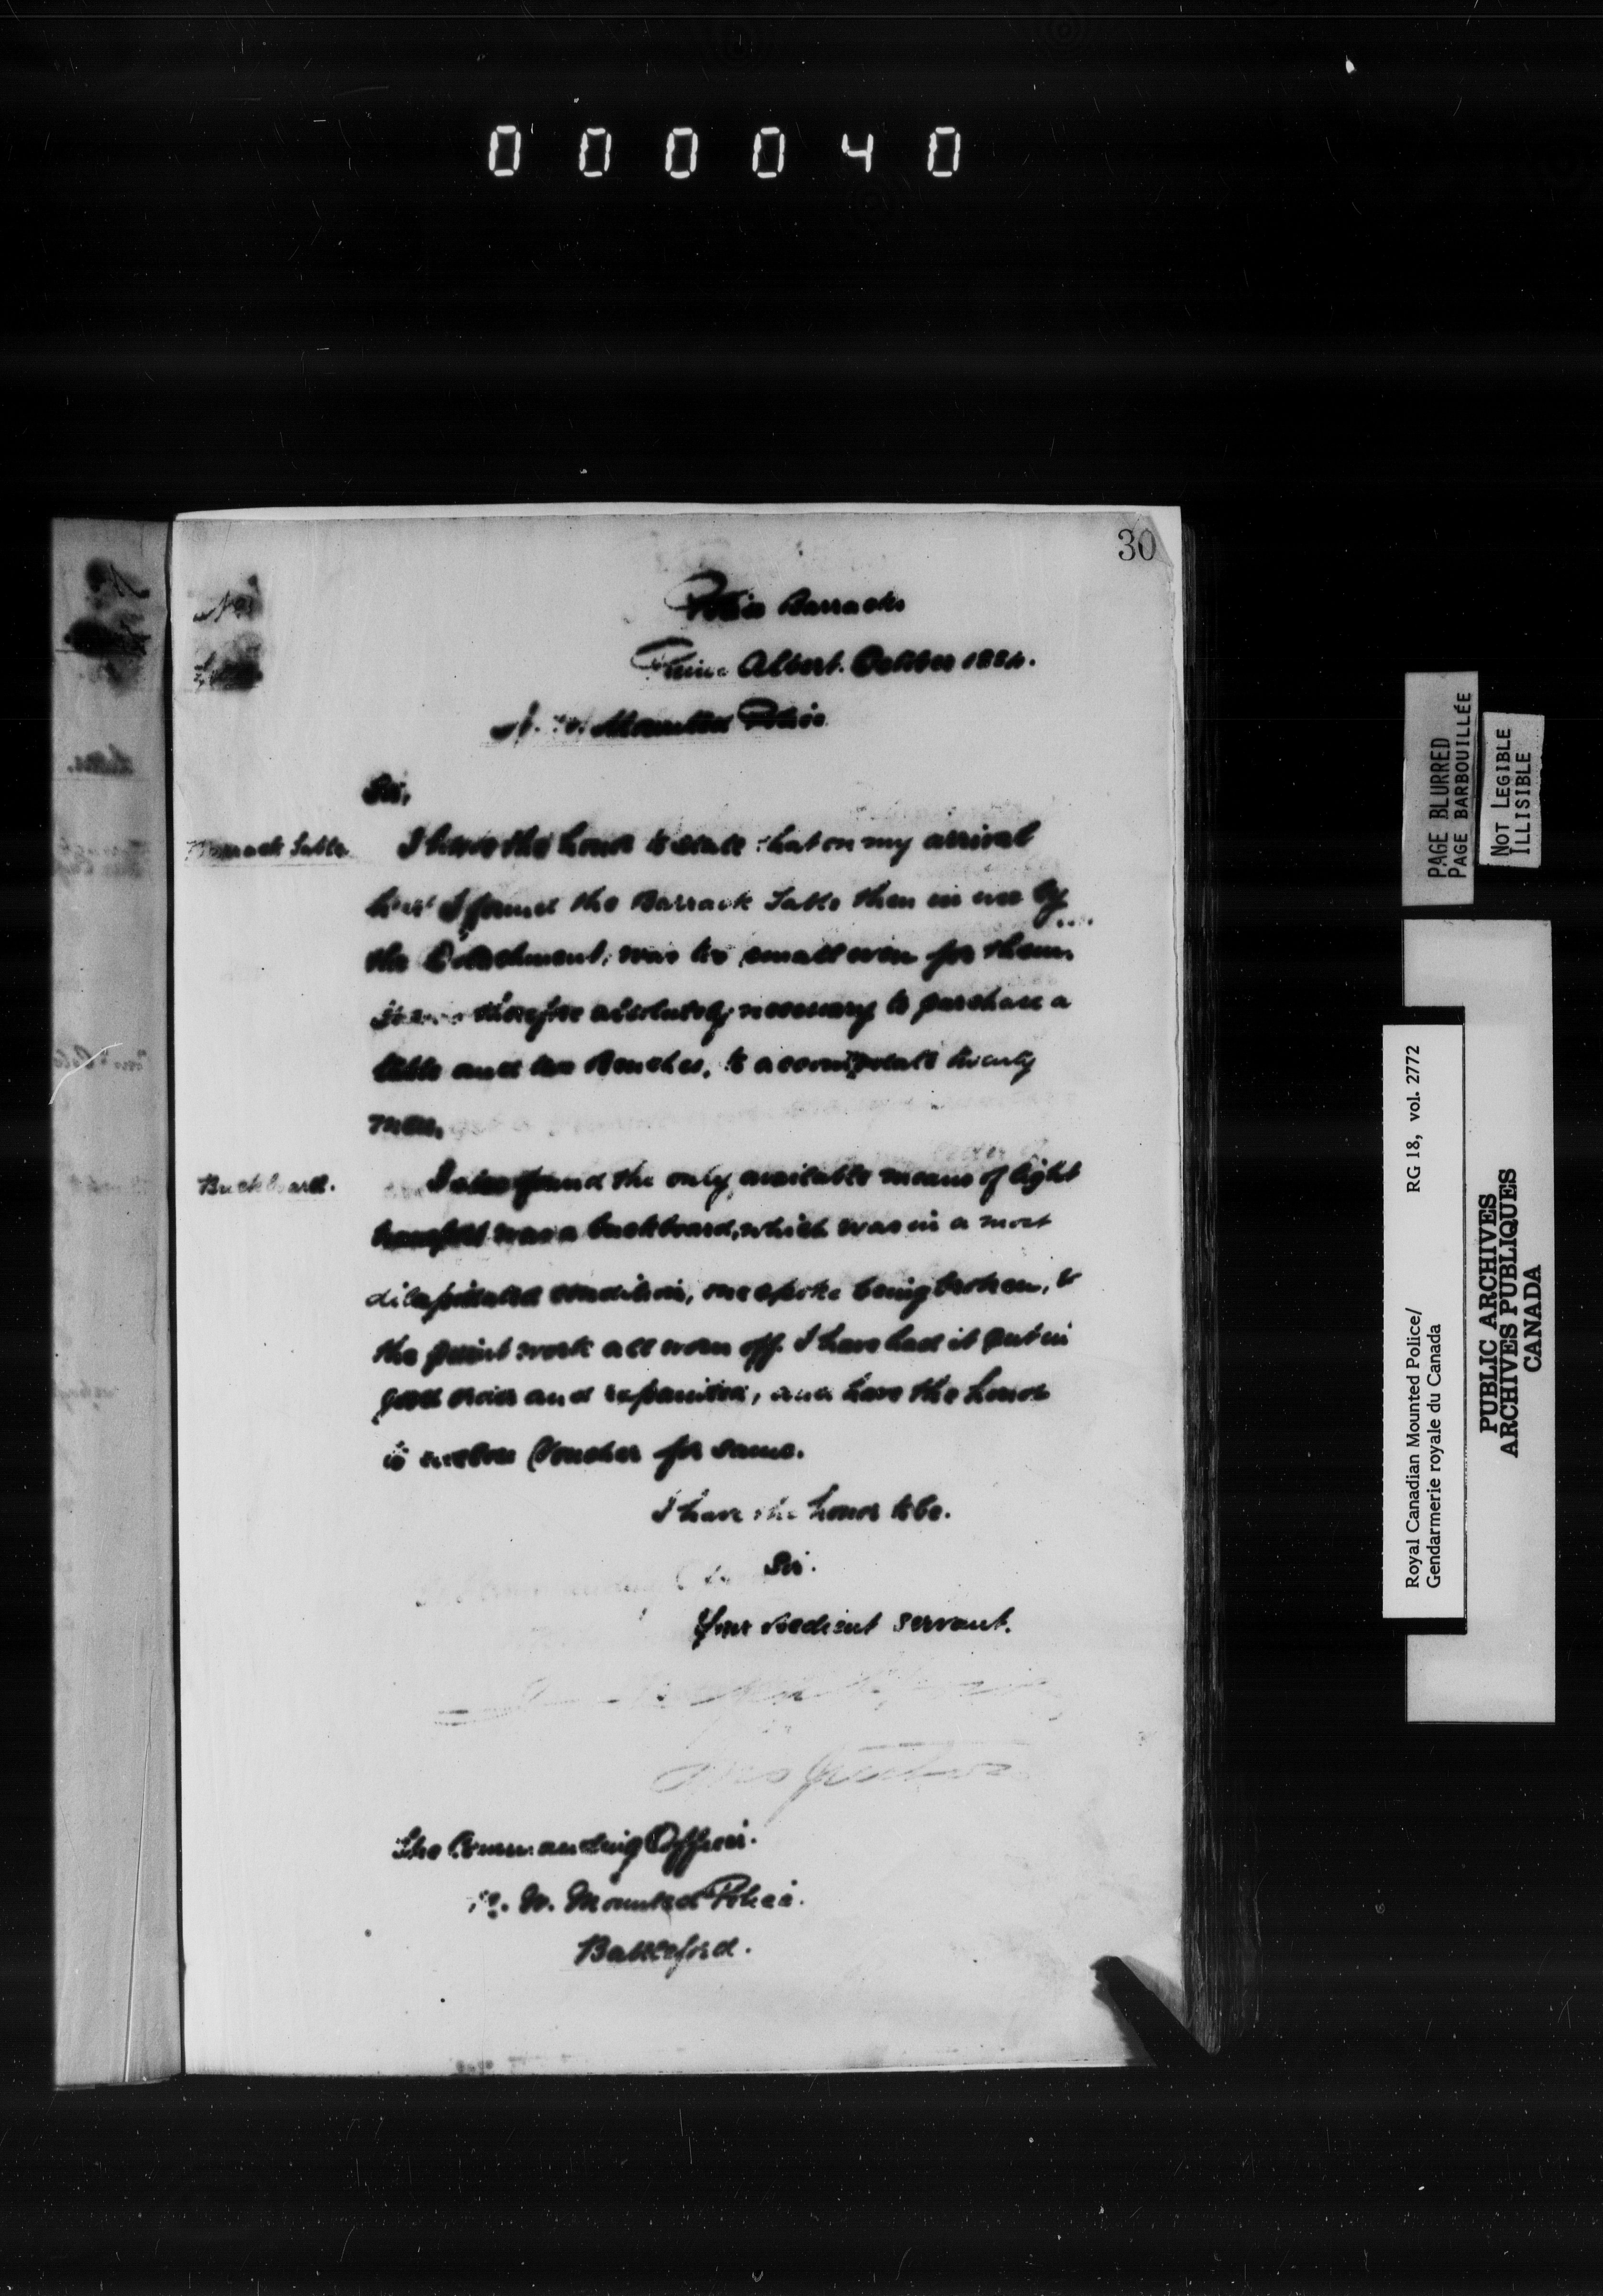 000040
30
Police Barracks
Prince Albert. October 1884.
N. W. Mounted Police
Sir,
Barrack Table
I have the honor to state that on my arrival
here I found the Barrack Table then in use by
the Detachment, was too small even for them.
therefore absolutely necessary to purchase a
table and two Benches, to accomodate twenty
men.
Buckboard.
I also found the only available means of light
transport was a buckboard, which was in a most
dilapidated condition, one spoke being broken, &
the paint work all worn off. I have had it put in
good order and repainted, and have the honor
to enclose Voucher for same.
I have the honor to be.
Sir.
Your obedient servant.
Inspector
The Commanding Officer.
N. W. Mounted Police.
Battleford.
PAGE BLURRED
PAGE BARBOUILLÉE
NOT LEGIBLE
ILLISIBLE
Royal Canadian Mounted Police/ RG 18, vol. 2772
Gendarmerie royale du Canada
PUBLIC ARCHIVES
ARCHIVES PUBLIQUES
CANADA